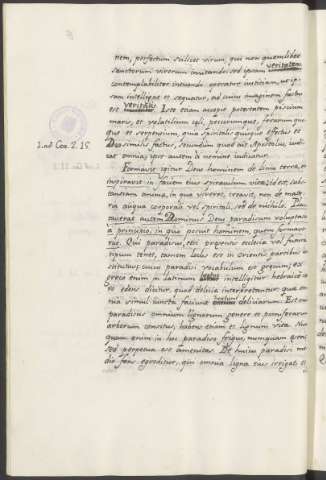 nem, perfectum scilicet virum, qui non quemlibet
sanctorum virorum imitando, sed ipsam veritatem
contemplabiliter intuendo, operatur iustitiam, ut ip-
sam intelligat et sequatur, ad cuius imaginem factus
est veritatis. Iste etiam accepit potestatem piscium
maris, et volatilium cęli, pecorumque, ferarumque
que et serpentium, quia spiritalis quisque effectus et
1. ad Cor. 2. 15. Deo similis factus, secundum quod ait Apostolus, iudi-
cat omnia, ipse autem à nemine iudicatur.
Formavit igitur Deus hominem de limo terrę, et
inspiravit in faciem eius spiraculum vitę, id est, sub-
stantiam animę, in qua viveret, creavit, non de mate-
ria aliqua corporali vel spiritali, sed de nihilo. Plan-
taverat autem Dominus Deus paradisum voluptatis
a principio, in quo posuit hominem, quem formave-
rat. Qui paradisus, etsi pręsentis ecclesię vel futurę
typum tenet, tamen locus est in orientis partibus con-
stitutus, cuius paradisi vocabulum ex gręcum, ex
gręco enim in latinum intelligitur hebraicè
eden dicitur, quod delicię interpretantur, quę om-
nia simul iuncta, faciunt hortum deliciarum. Est enim
paradisus omnium lignorum genere et pomiferarum
arborum consitus, habens etiam et lignum vitę. Nun-
quam enim in hoc paradiso frigus, nunquam
sed perpetua est amenitas. De huius paradisi me-
dio fons egreditur, qui omnia ligna eius irrigat, et